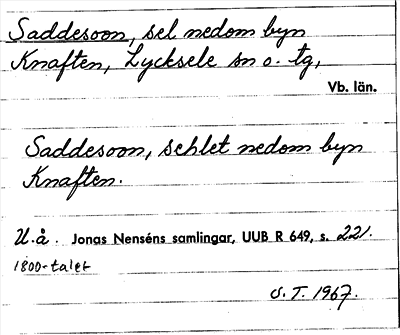 Saddesoon, sel nedom byn
Knaften, Lycksele sn o. tg,
Vb. län.
Saddesoon, schlet nedom byn
Knaften.
U.å. Jonas Nenséns samlingar, UUB R 649, s. 221.
1800-talet
S.T. 1967.